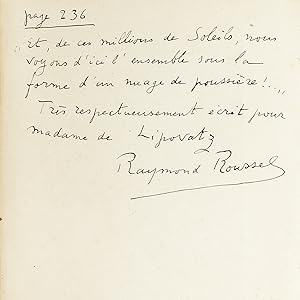 page 236
"Et, de ces millions de Soleils, nous
voyons d'ici l'ensemble sous la
forme d'un nuage de poussière!..."
Très respectueusement écrit pour
madame de Lipovatz
Raymond Roussel